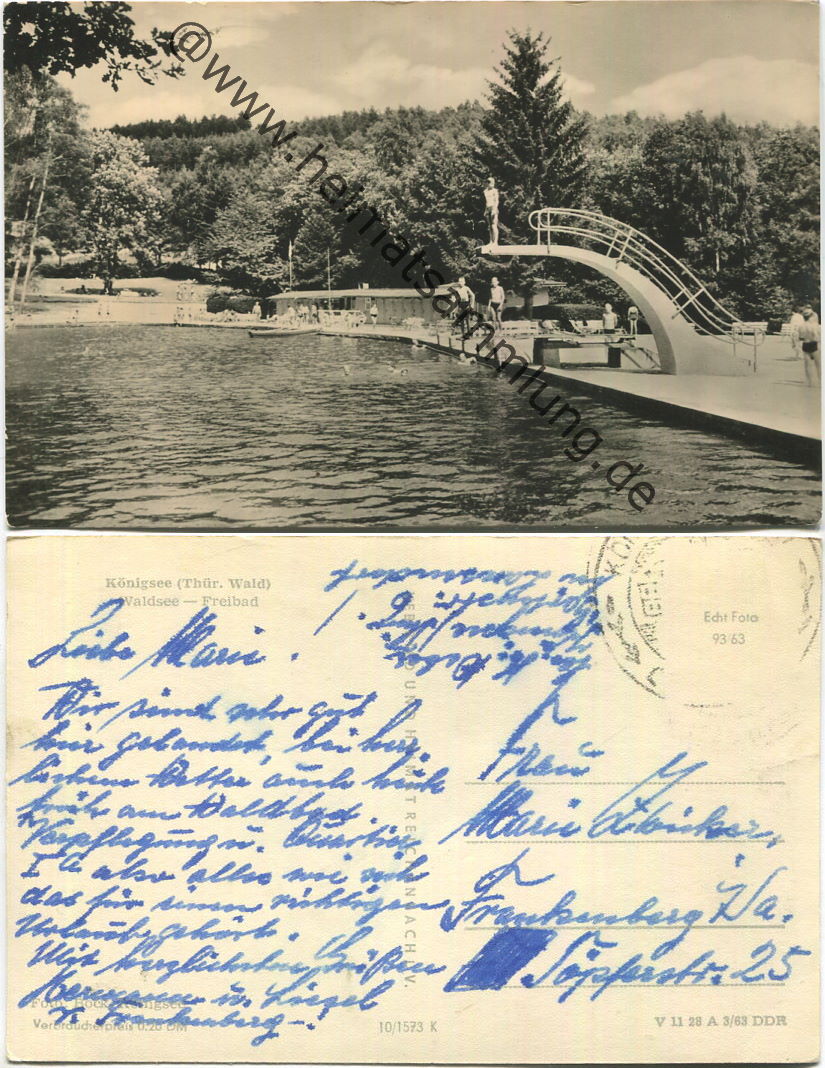 @www.heimatsammlung.de
Königsee (Thür. Wald)
Waldsee — Freibad
Echt Foto
93/63
Liebe Marie!
Wir sind sehr gut
hier gelandet, bei herr-
lichem Wetter auch heute
früh am Waldbad.
Verpflegung u. Quartier
Ia also alles wie sich
das für einen richtigen
Urlaub gehört.
Mit herzlichsten Grüßen
Hermann u. Liesel
v. Frankenberg
Frau
Marie
Frankenberg /Sa.
Töpferstr. 25
Foto: Böck, Königsee
Verbraucherpreis 0.20 DM
10/1573 K
V 11 28 A 3/63 DDR